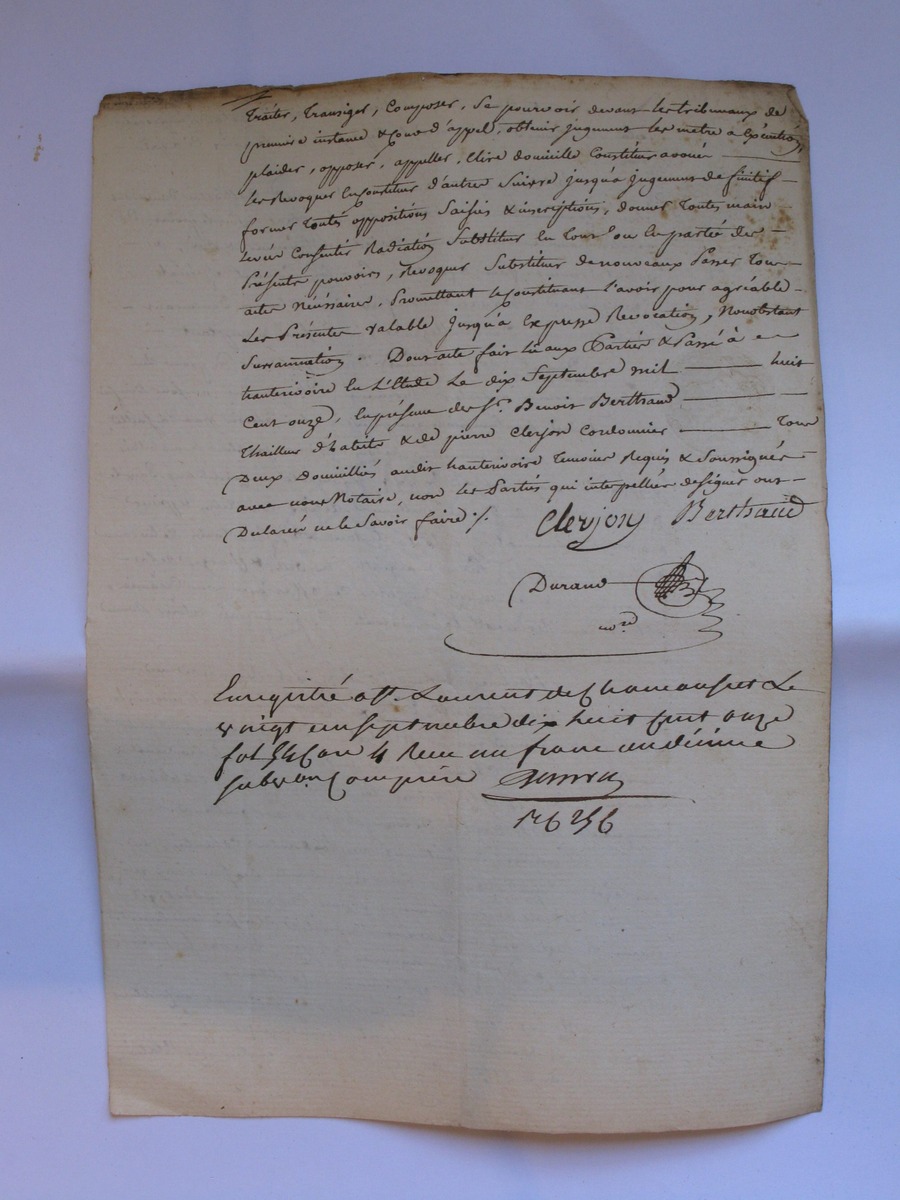 traiter, transiger, composer, se pourvoir devant les tribunaux de
premiere instance & cour d'appel, obtenir jugement les metre a Execution
plaider, opposer, appeller, elire domicille Constituer avoué
les revoquer en constituer d'autre suivre jusqu'a jugement definitif
former toutes oppositions saisies & inscriptions, donner toutes main
levée Consentir Radiation substituer en tout ou en partie des
Présents pouvoirs, revoquer substituer de nouveaux passer tous
actes nécéssaires, Promettant le constituant l'avoir pour agréable
Les Présentes valable jusqu'a expresse Revocation, Nonobstant
Surannation. Dont acte fait lu aux Parties & Passé à
hauterivoire en l'Etude Le dix Septembre mil huit
cent onze, en présence de Sr. Benoit Berthaud
thailleur d'habits & de pierre Clerjon Cordonnier tous
Deux Domicilliés audit hauterivoire Temoins Requis & Soussignés
avec nous Notaire, non les Parties qui interpellées de signer ont
Déclaré ne le Savoir faire ./.
Clerjon Berthaud
Durand
nore
Enregistré a St Laurent de Chamousset Le
vingt un septembre dix huit cent onze
fol 54 Case 4 Recu un franc un décime
subvon Comprise